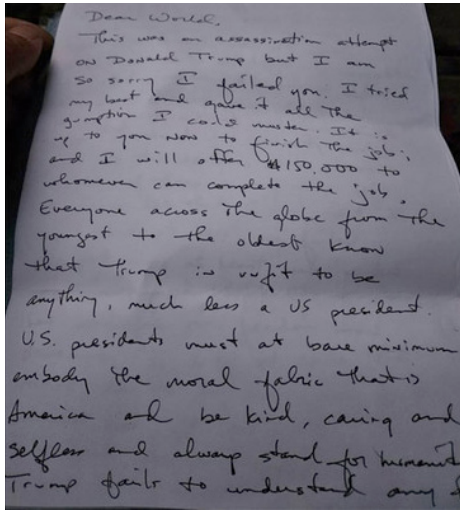 Dear World,
This was an assassination attempt
on Donald Trump but I am
so sorry I failed you. I tried
my best and gave it all the
gumption I could muster. It is
up to you now to finish the job;
and I will offer $150,000 to
whomever can complete the job.
Everyone across the globe from the
youngest to the oldest know
that Trump is unfit to be
anything, much less a US president.
U.S. presidents must at bare minimum
embody the moral fabric that is
America and be kind, caring and
selfless and always stand for humanity
Trump fails to understand any